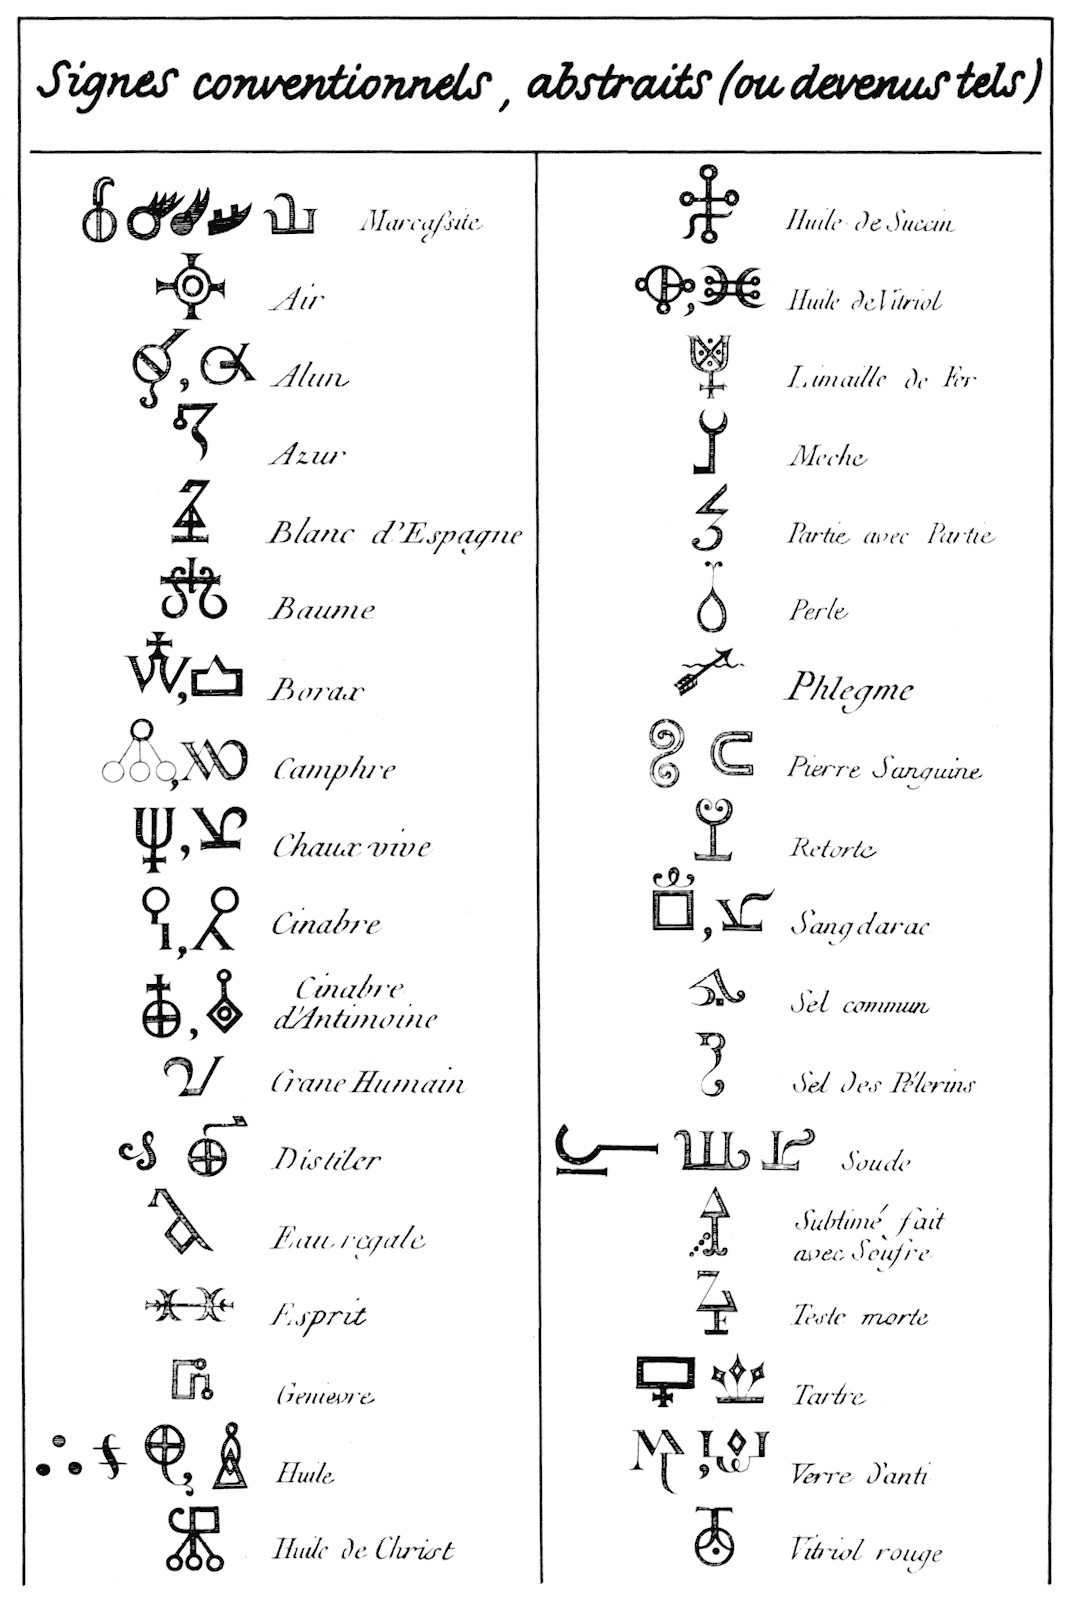 Signes conventionnels, abstraits (ou devenus tels)
Marcaſsite
Air
Alun
Azur
Blanc d'Espagne
Baume
Borax
Camphre
Chaux vive
Cinabre
Cinabre
d'Antimoine
Crane Humain
Distiler
Eau regale
Esprit
Genievre
Huile
Huile de Christ
Huile de Succin
Huile de Vitriol
Limaille de Fer
Meche
Partie avec Partie
Perle
Phlegme
Pierre Sanguine
Retorte
Sangdarac
Sel commun
Sel des Pélerins
Soude
Sublimé fait
avec Soufre
Teste morte
Tartre
Verre d'anti
Vitriol rouge